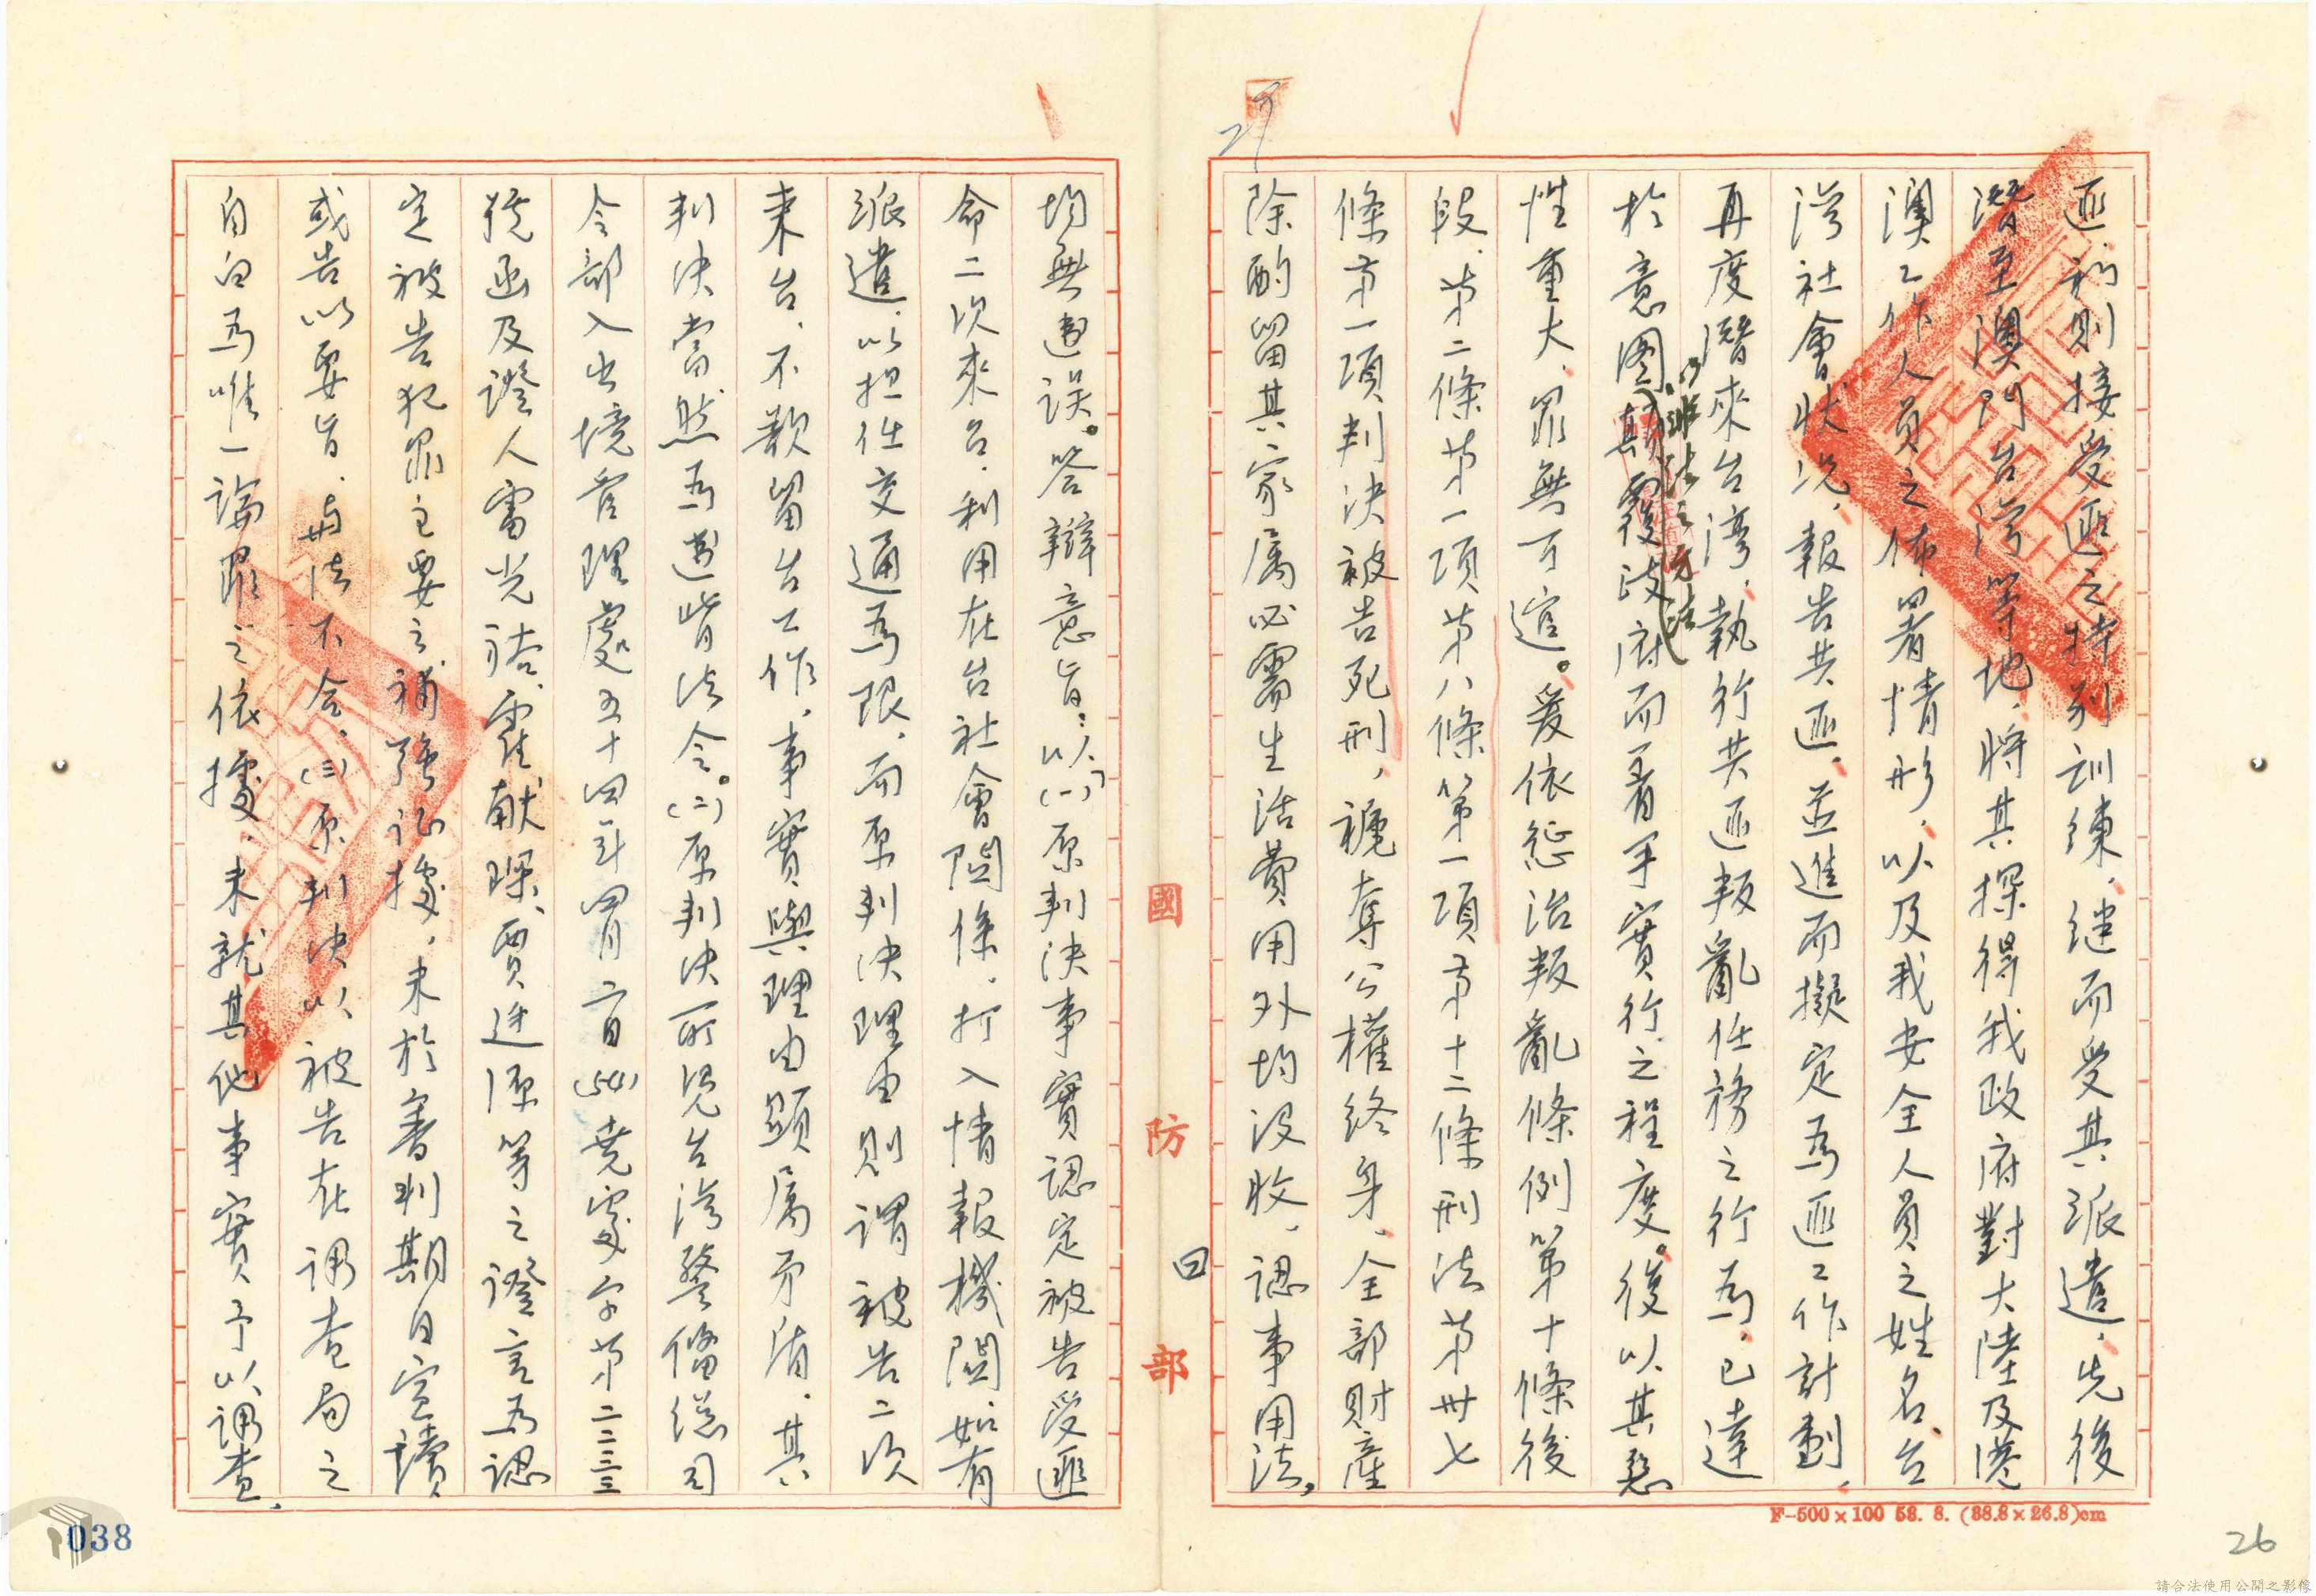 匪，初則接受匪之特別訓練，繼而受其派遣，先後
潛至澳門台灣等地，將其探得我政府對大陸及港
澳工作人員之佈署情形，以及我安全人員之姓名、台
灣社會狀況，報告共匪，並進而擬定為匪工作計劃，
再度潛來台灣，執行共匪叛亂任務之行為，已達
於意圖以非法之方法顛覆政府而著手實行之程度。復以其惡
性重大，罪無可逭。爰依懲治叛亂條例第十條後
段、第二條第一項第八條第一項第十二條刑法第卅七
條第一項判決被告死刑，褫奪公權終身，全部財產
除酌留其家屬必需生活費用外均沒收，認事用法，
均無違誤。答辯意旨：以(一)原判決事實認定被告受匪
命二次來台，利用在台社會關係，打入情報機關，如有
派遣，以担任交通為限，而原判決理由則謂被告二次
來台，不歡留台工作，事實與理由顯屬矛盾，其
判決當然為違背法令。(二)原判決所凭台灣警備總司
令部入出境管理處五十四年四月二百(54)堯處字第二二三三
號函及證人雷光祜、霍献琛、賈進源等之證言為認
定被告犯罪主要之補強証據，未於審判期日宣讀
或告以要旨，與法不合，(三)原判決以被告在調查局之
自白為唯一論罪之依據，未就其他事實予以調查，
國防部
日
27
F-500×100 58. 8. (38.8×26.8)cm
26
038
請合法使用公開之影像